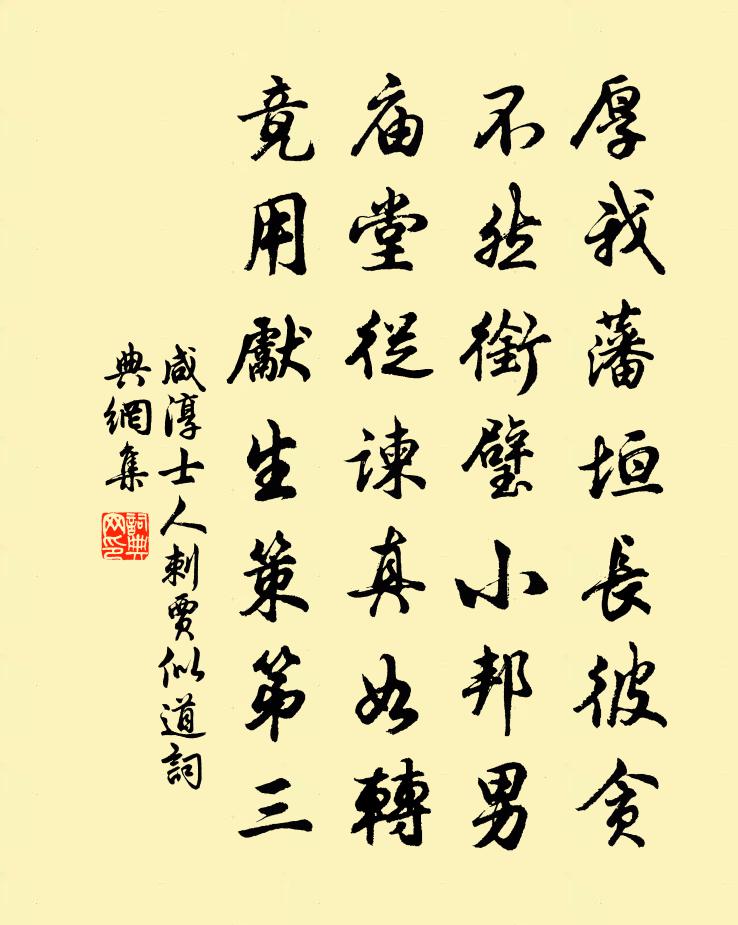 厚我藩垣長彼貪
不然銜璧小邦男
庙堂從諫真如轉
竟用獻生策第三
咸淳士人刺賈似道詞
典網集
詞典網印